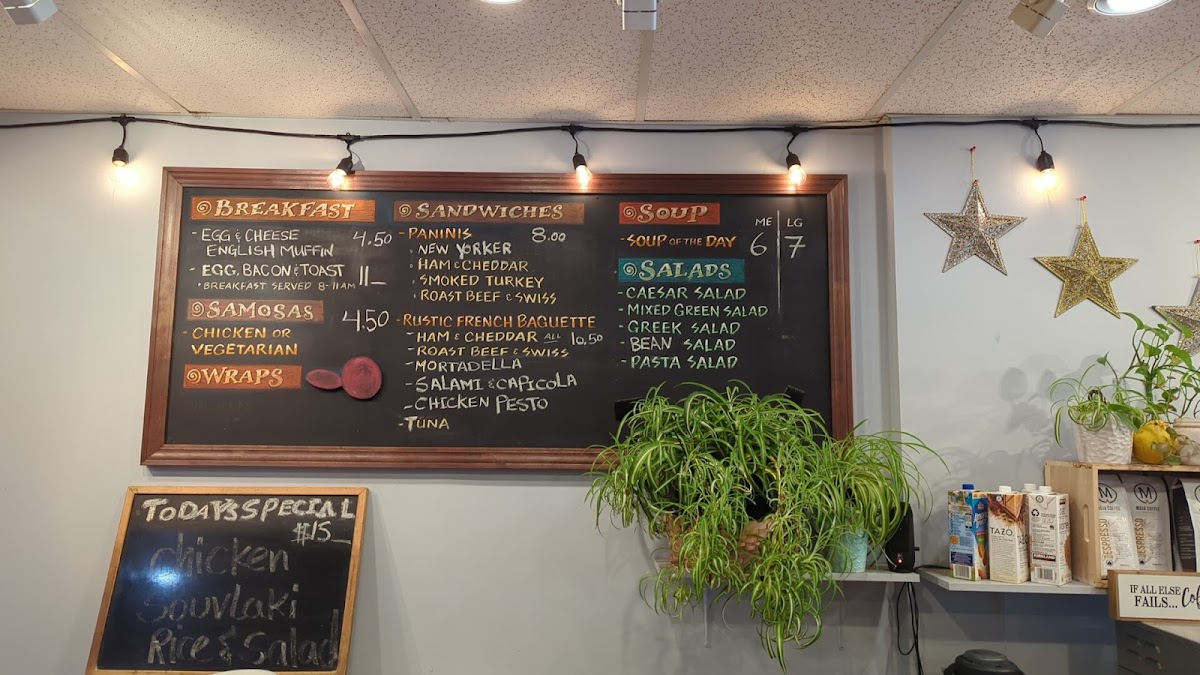 BREAKFAST
- EGG & CHEESE 4.50
ENGLISH MUFFIN
- EGG, BACON & TOAST 11_
• BREAKFAST SERVED 8-11AM
SAMOSAS 4.50
- CHICKEN OR
VEGETARIAN
WRAPS
SANDWICHES
- PANINIS 8.00
• NEW YORKER
• HAM & CHEDDAR
• SMOKED TURKEY
• ROAST BEEF & SWISS
- RUSTIC FRENCH BAGUETTE
- HAM & CHEDDAR ALL 10.50
- ROAST BEEF & SWISS
- MORTADELLA
- SALAMI & CAPICOLA
- CHICKEN PESTO
- TUNA
SOUP
ME LG
- SOUP OF THE DAY 6 7
SALADS
- CAESAR SALAD
- MIXED GREEN SALAD
- GREEK SALAD
- BEAN SALAD
- PASTA SALAD
TODAY'S SPECIAL
$15_
Chicken
Souvlaki
Rice & Salad
TAZO
M
ESPRESSO
M
IF ALL ELSE
FAILS...